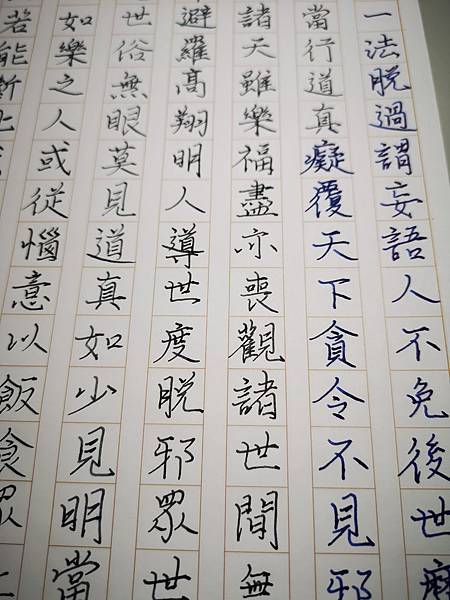 一法脱過謂妄語人不免後世
當行道真癡覆天下貪令不見邪
諸天雖樂福盡亦喪觀諸世間無
避羅高翔明人導世度脱邪眾世
世俗無眼莫見道真如少見明當
如樂之人或從惱意以飯食眾
若能斷此